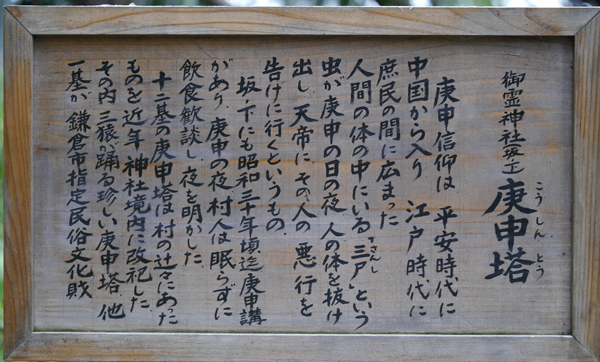 御霊神社坂ノ下
庚申塔
こうしんとう
庚申信仰は 平安時代に
中国から入り 江戸時代に
庶民の間に広まった
人間の体の中にいる「三尸」という
さんし
虫が庚申の日の夜 人の体を抜け
出し 天帝に その人の 悪行を
告げに行くというもの。
坂ノ下にも昭和三十年頃迄庚申講
があり、庚申の夜 村人は眠らずに
飲食歓談し 夜を明かした
十二基の庚申塔は村の辻々にあった
ものを近年神社境内に改祀した
その内 三猿が踊る珍しい庚申塔 他
一基が 鎌倉市指定民俗文化財